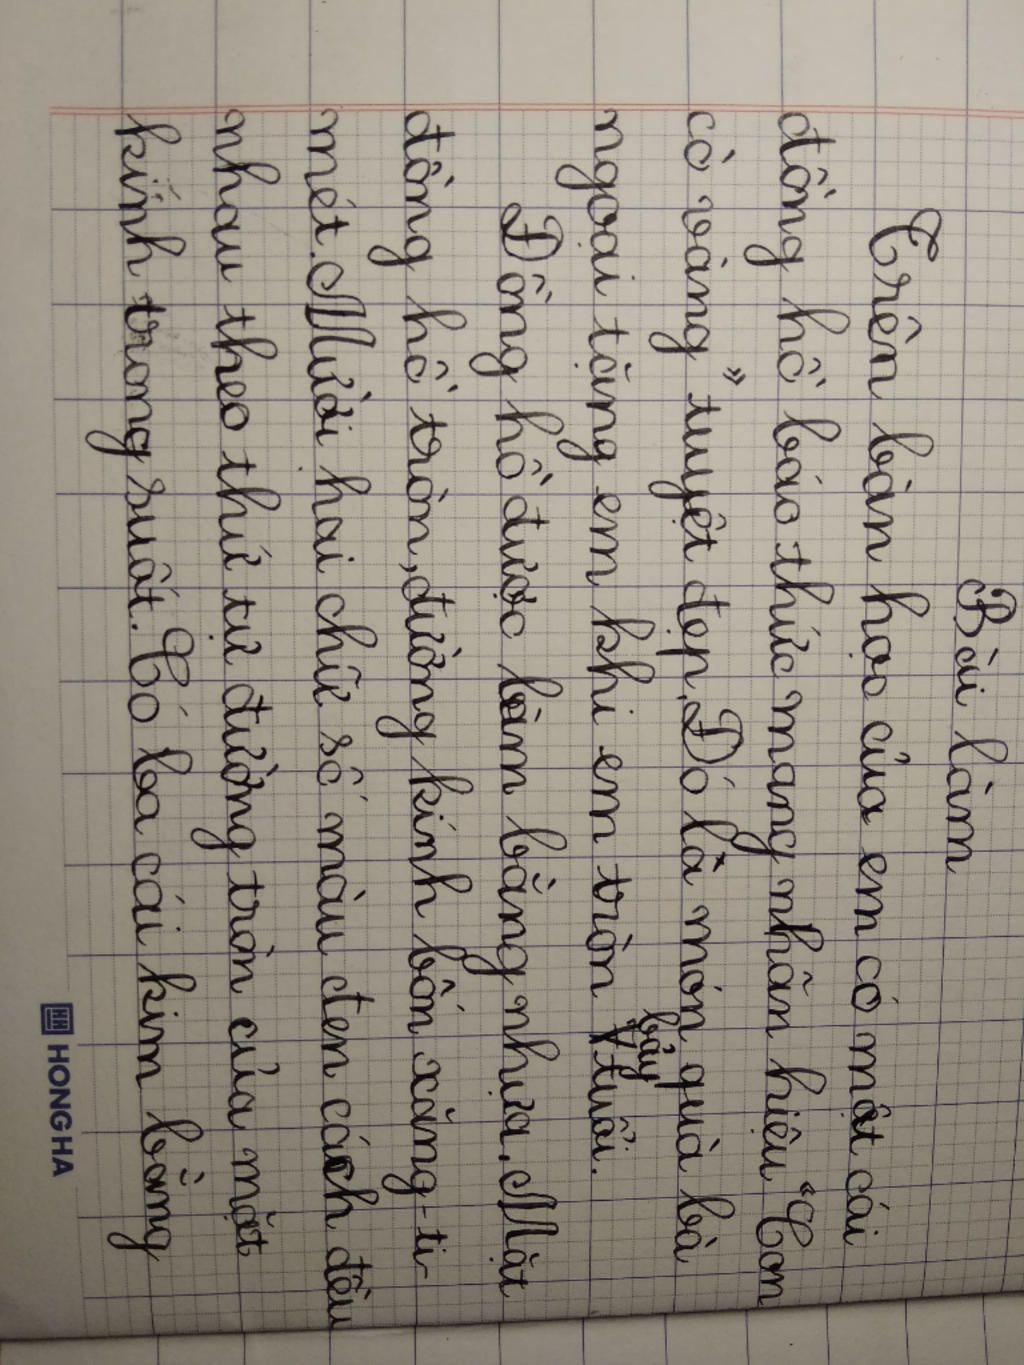 Bài làm
Trên bàn học của em có một cái
đồng hồ báo thức mang nhãn hiệu "Con
cò vàng" tuyệt đẹp. Đó là món quà bà
ngoại tặng em khi em tròn bảy tuổi.
Đồng hồ được làm bằng nhựa. Mặt
đồng hồ tròn, đường kính bốn xăng-ti-
mét. Mười hai chữ số màu đen cách đều
nhau theo thứ tự đường tròn của mặt
kính trong suốt. Có ba cái kim bằng
HONG HA